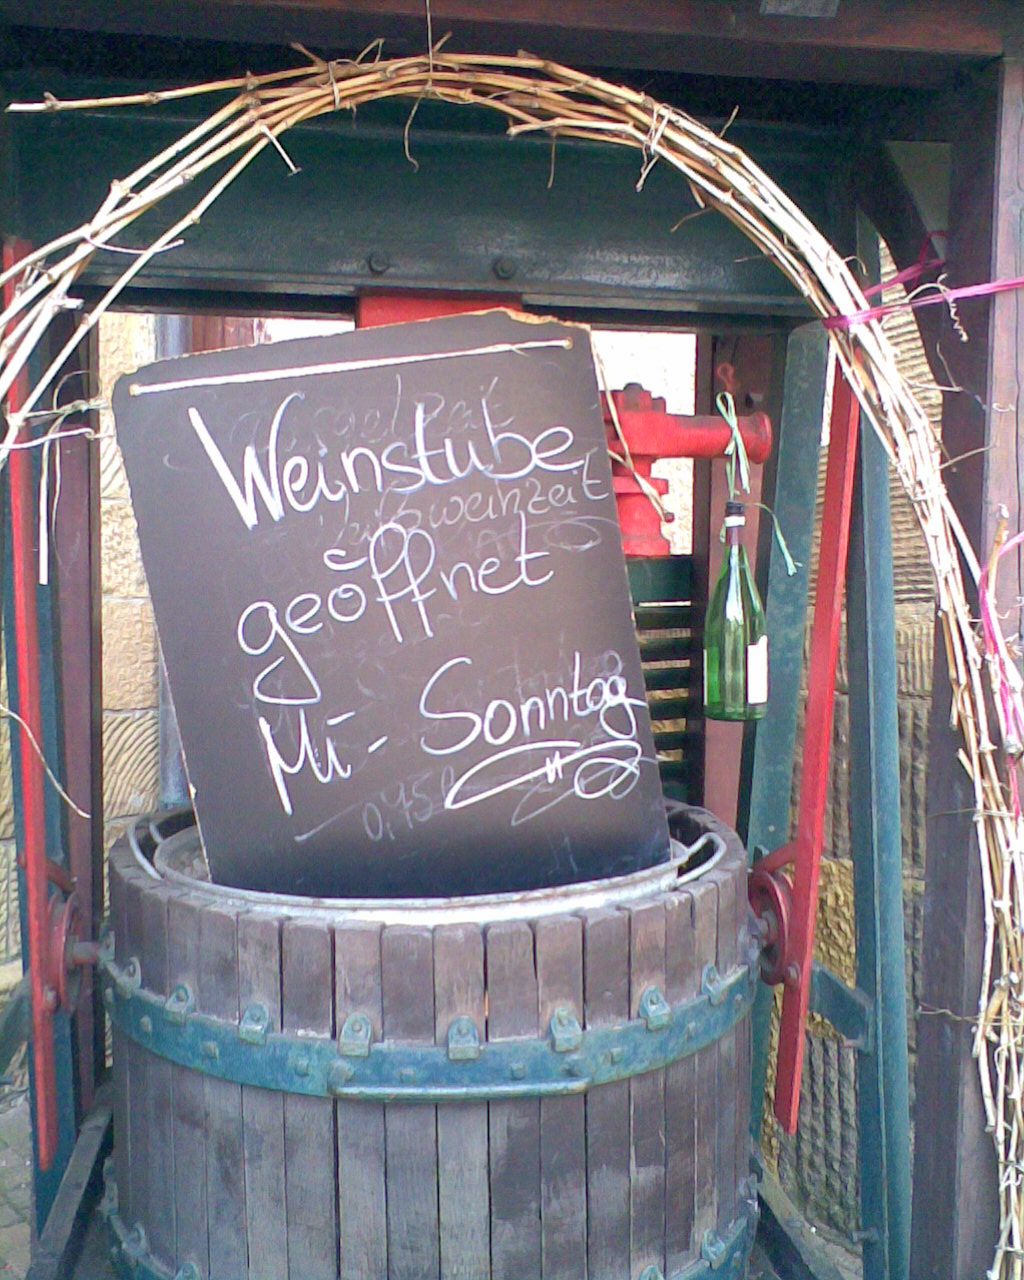 Weinstube
geöffnet
Mi - Sonntag
0,75l